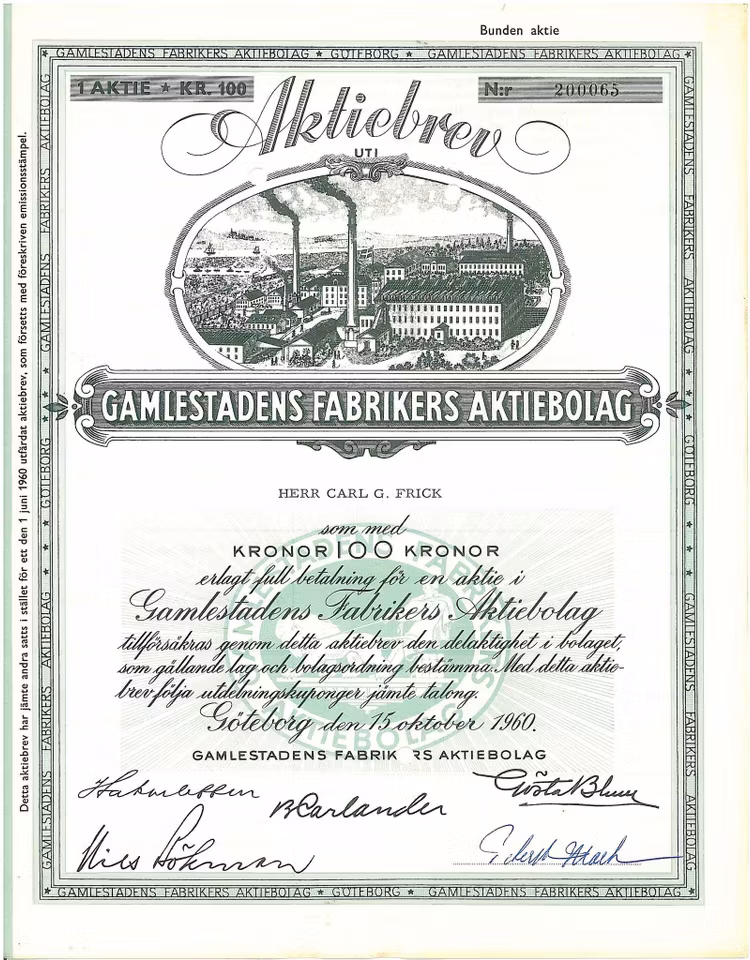 Bunden aktie
GAMLESTADENS FABRIKERS AKTIEBOLAG ★ GÖTEBORG ★ GAMLESTADENS FABRIKERS AKTIEBOLAG
1 AKTIE ★ KR. 100
N:r 200065
Aktiebrev
UTI
GAMLESTADENS FABRIKERS AKTIEBOLAG
HERR CARL G. FRICK
som med
KRONOR 100 KRONOR
erlagt full betalning för en aktie i
Gamlestadens Fabrikers Aktiebolag
tillförsäkras genom detta aktiebrev den delaktighet i bolaget,
som gällande lag och bolagsordning bestämma. Med detta aktie-
brev följa utdelningskuponger jämte talong.
Göteborg den 15 oktober 1960.
GAMLESTADENS FABRIK RS AKTIEBOLAG
B Carlander
Gösta
Nils
GAMLESTADENS FABRIKERS AKTIEBOLAG ★ GÖTEBORG ★ GAMLESTADENS FABRIKERS AKTIEBOLAG
Detta aktiebrev har jämte andra satts i stället för ett den 1 juni 1960 utfärdat aktiebrev, som försetts med föreskriven emissionsstämpel.
GAMLESTADENS FABRIKERS AKTIEBOLAG ★ GÖTEBORG ★ GAMLESTADENS FABRIKERS AKTIEBOLAG
GAMLESTADENS FABRIKERS AKTIEBOLAG ★ GÖTEBORG ★ GAMLESTADENS FABRIKERS AKTIEBOLAG